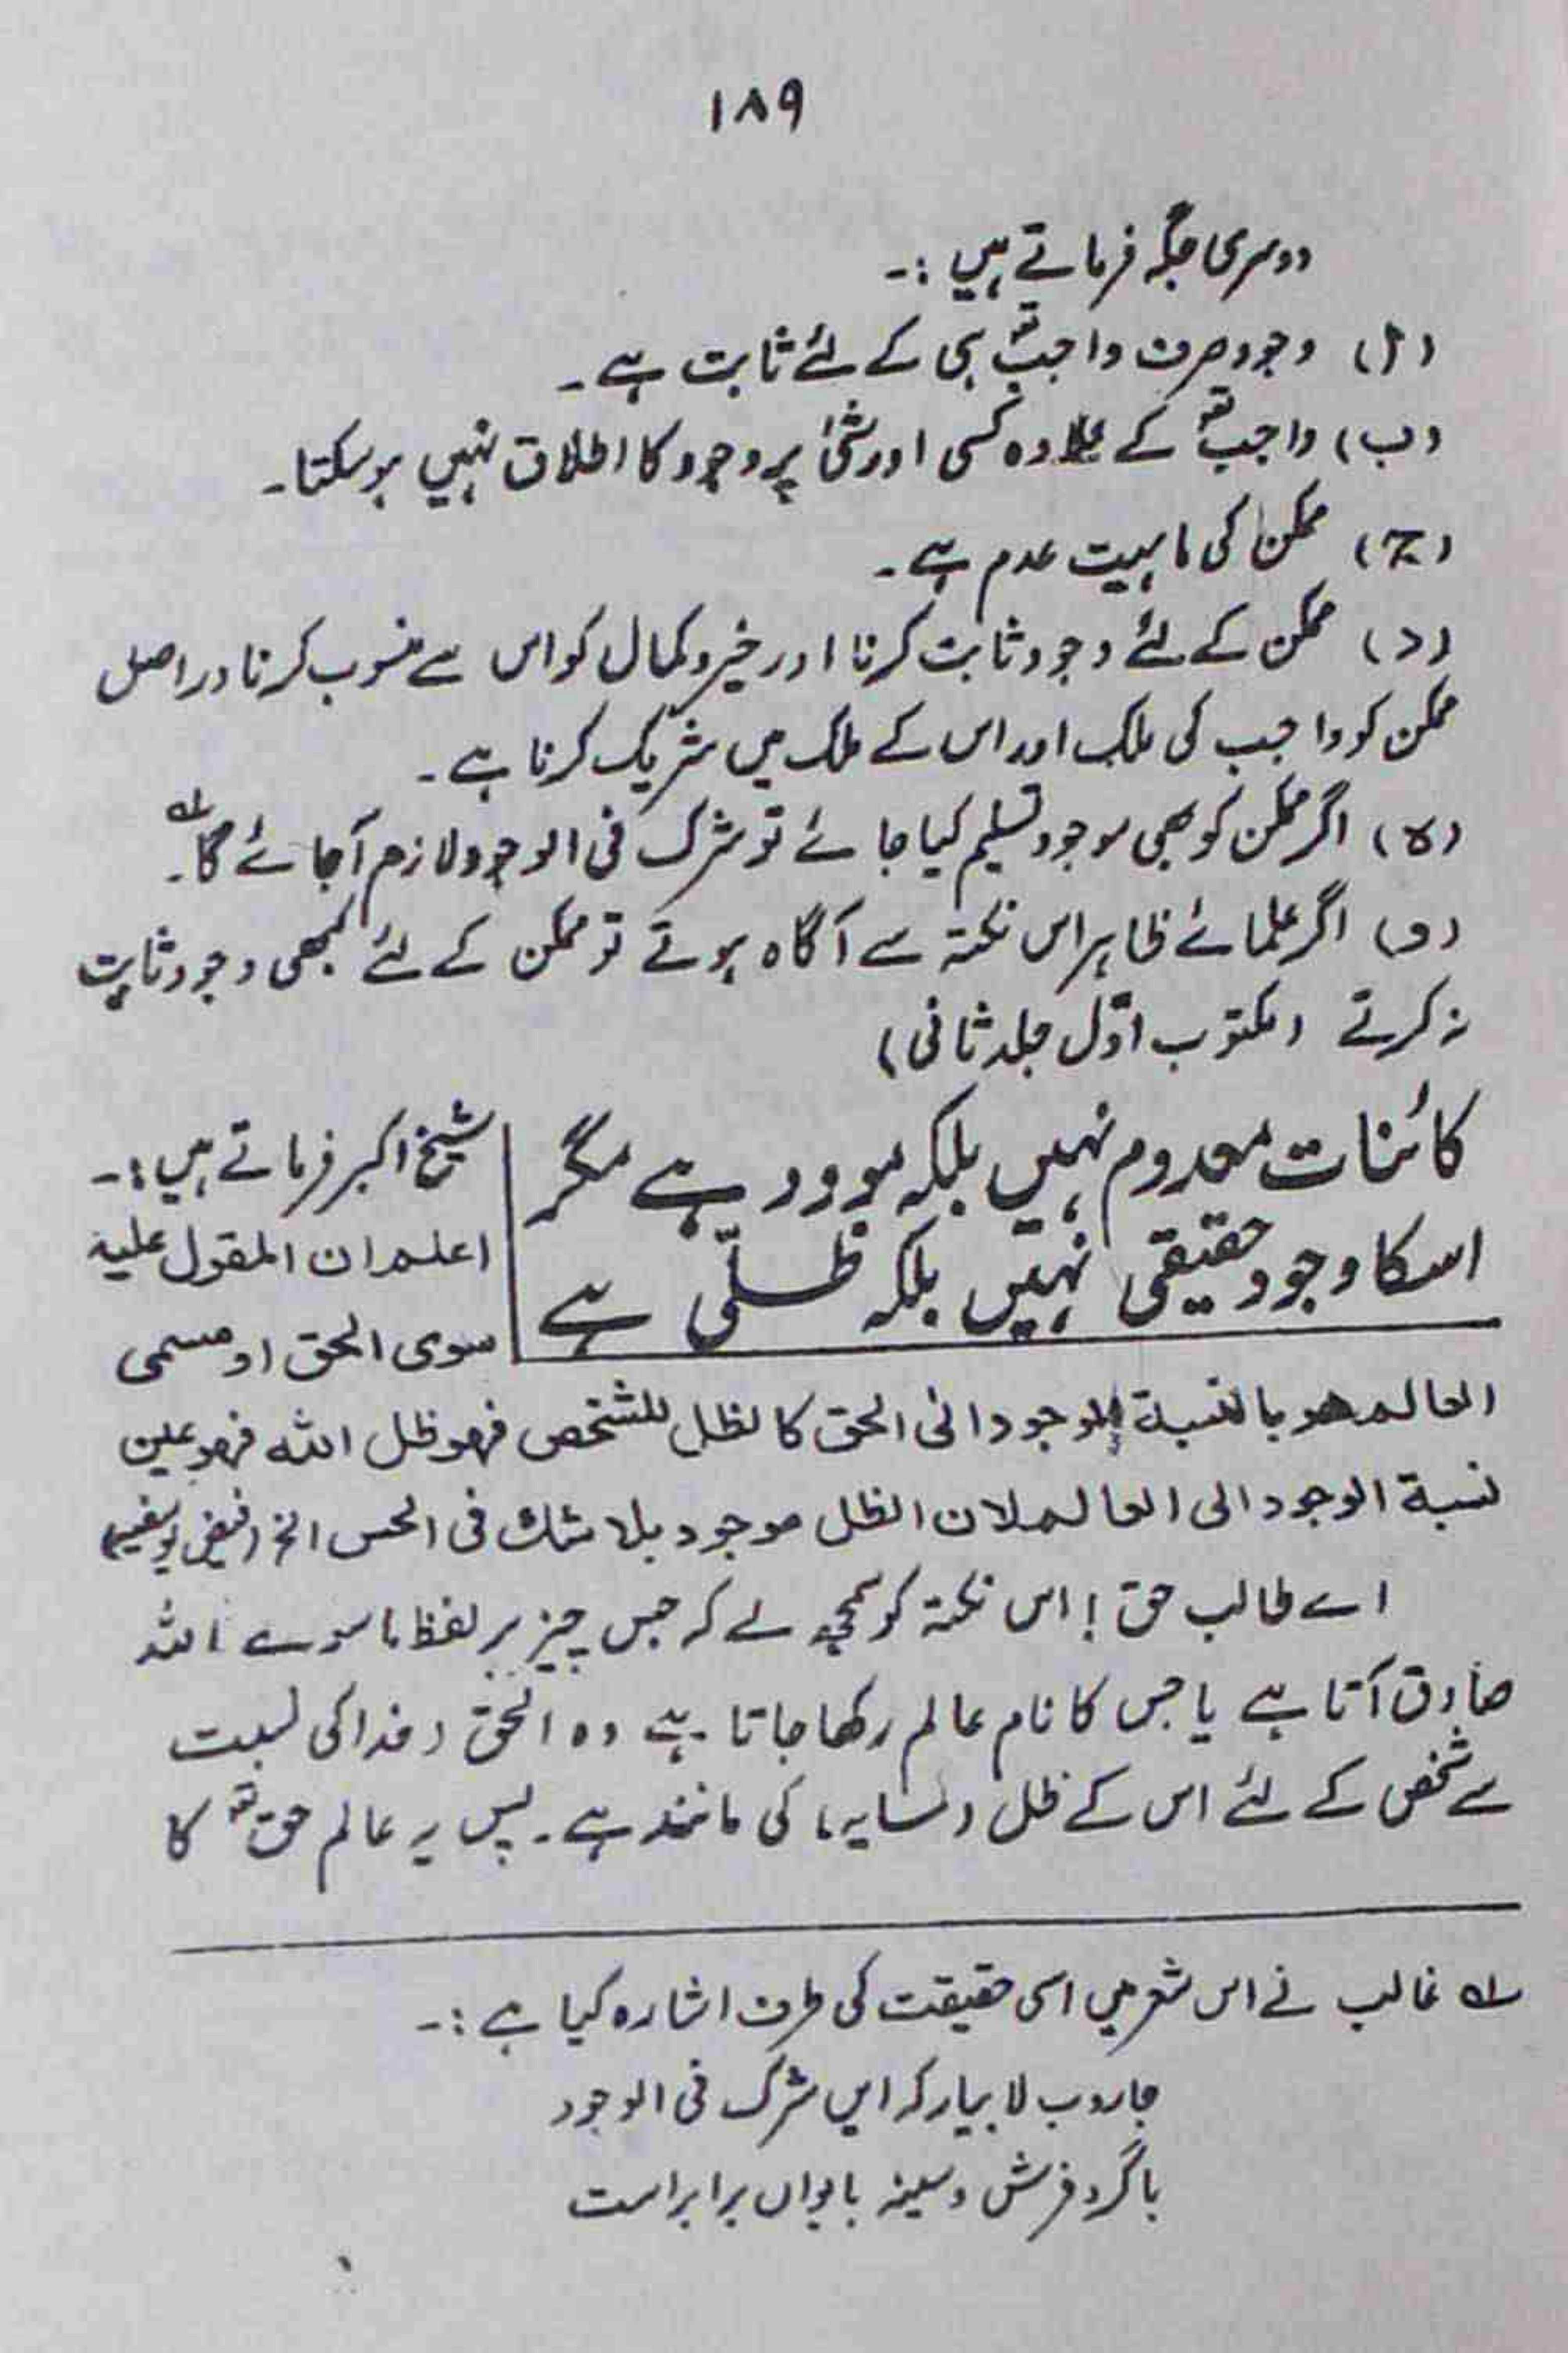 ۱۸۹
دوسری جگہ فرماتے ہیں :۔
(ا) وجود صرف واجبؔ تعہ ہی کے لئے ثابت ہے ۔
(ب) واجب تعہ کے علاوہ کسی اور شئ پر وجود کا اطلاق نہیں ہوسکتا۔
(ج) ممکن کی ماہیت عدم ہے ۔
(د) ممکن کے لئے وجود ثابت کرنا اور خیر و کمال کو اس سے منسوب کرنا دراصل
ممکن کو واجب کی ملک اور اس کے ملک میں شریک کرنا ہے ۔
(ہ) اگر ممکن کو بھی موجود تسلیم کیا جائے تو شرک فی الوجود لازم آجائے گا ۱؎۔
(و) اگر علمائے ظاہر اس نکتہ سے آگاہ ہوتے تو ممکن کے لئے کبھی وجود ثابت
نہ کرتے (مکتوب اوّل جلد ثانی)
کائنات معدوم نہیں بلکہ موجود ہے مگر
اسکا وجود حقیقی نہیں بلکہ ظلّی ہے
شیخ اکبر فرماتے ہیں :۔
اعلم ان المقول علیہ
سوی الحق او مسمی
العالم ھو بالنسبة الوجود الی الحق کالظل للشخص فھو ظل اللہ فھو عین
نسبة الوجود الی العالم لان الظل موجود بلا شک فی الحس الخ (فیض یوسفیہ)
اے طالب حق ! اس نکتہ کو سمجھ لے کہ جس چیز پر لفظ ماسوے اللہ
صادق آتا ہے یا جس کا نام عالم رکھا جاتا ہے وہ الحق (خدا کی نسبت
سے شخص کے لئے اس کے ظل (سایہ) کی مانند ہے ۔ پس یہ عالم حق تعہ کا
۱؎ غالب نے اس شعر میں اسی حقیقت کی طرف اشارہ کیا ہے :۔
جاروب لا بیار کہ ایں شرک فی الوجود
با گرد فرش و سینہ بایواں برابر است